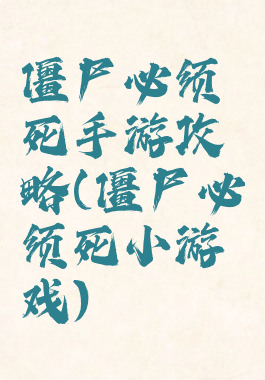 僵尸必须
死手游攻
略(僵尸必
须死小游
戏)